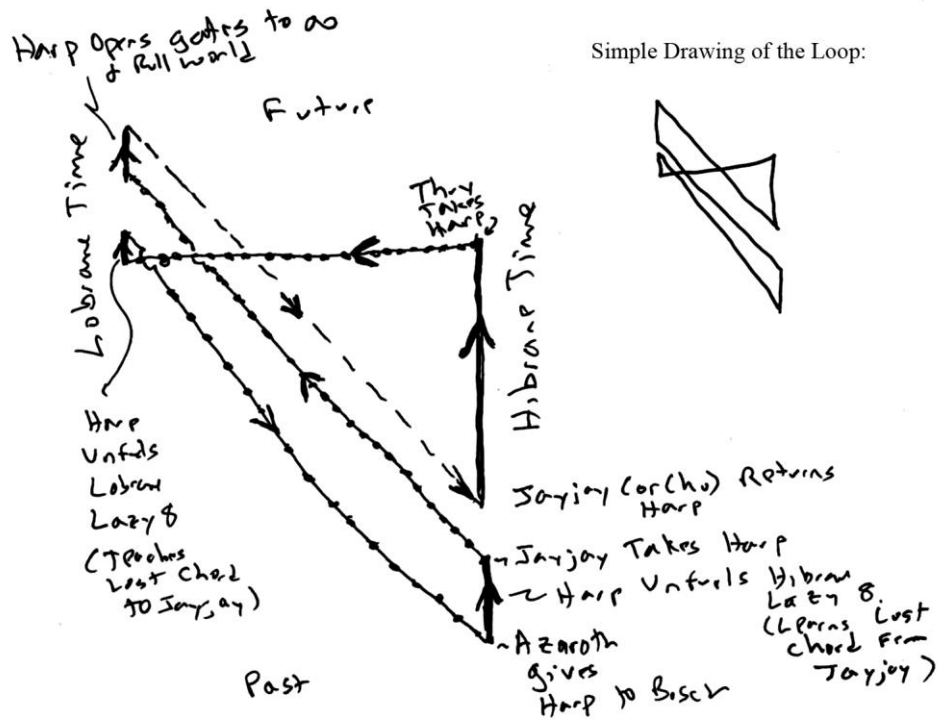 Harp Opens gates to ∞
& Full world
Simple Drawing of the Loop:
Future
Lobrane Time
They
Takes
Harp
Hibrane Time
Harp
Unfurls
Lobrane
Lazy 8
(Teaches
Lost Chord
to Jayjay)
Jayjay (or Chu) Returns
Harp
Jayjay Takes Harp
Harp Unfurls Hibrane
Lazy 8.
(Learns Lost
Chord From
Jayjay)
Azaroth
gives
Harp to Bosch
Past